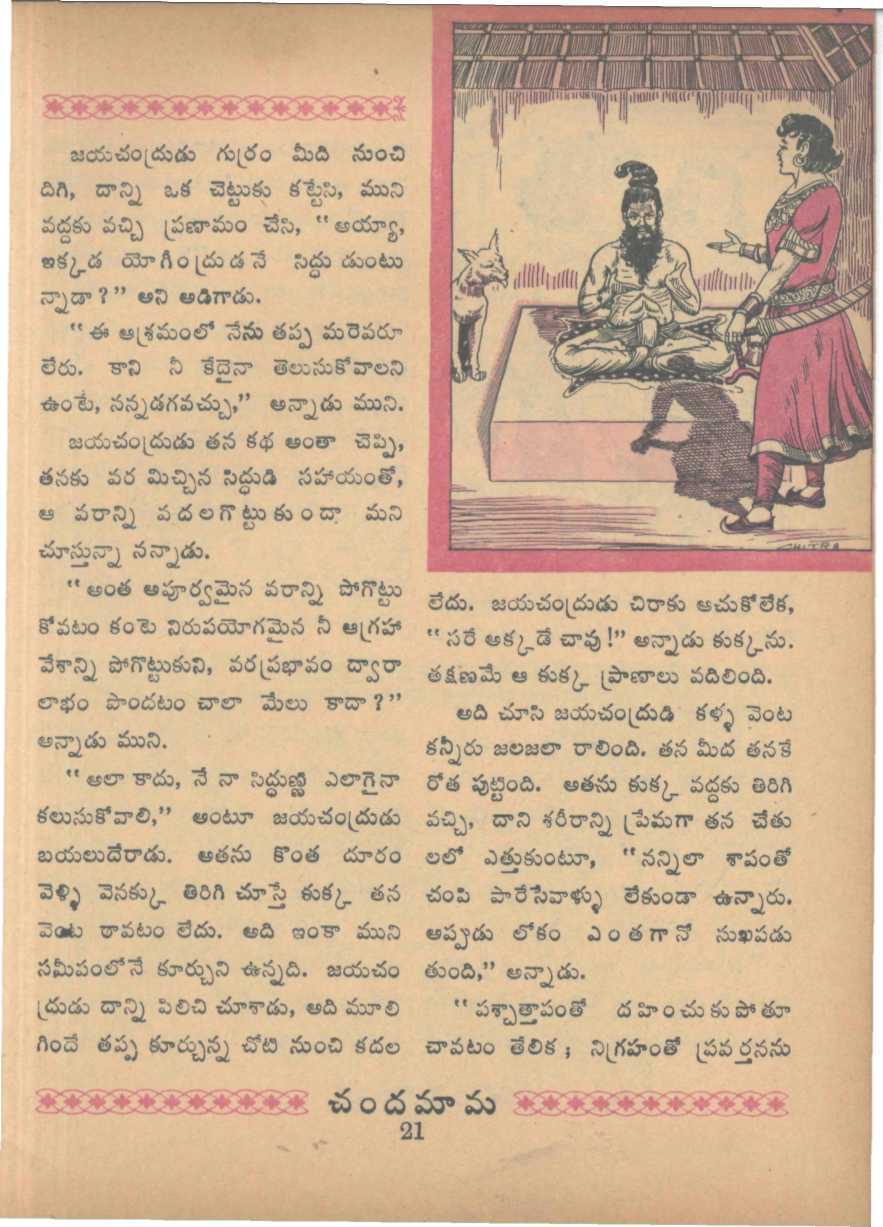 జయచంద్రుడు గుర్రం మీది నుంచి
దిగి, దాన్ని ఒక చెట్టుకు కట్టేసి, ముని
వద్దకు వచ్చి ప్రణామం చేసి, "అయ్యా,
ఇక్కడ యోగీంద్రుడనే సిద్ధు డుంటు
న్నాడా?" అని అడిగాడు.
"ఈ ఆశ్రమంలో నేను తప్ప మరెవరూ
లేరు. కాని నీ కేదైనా తెలుసుకోవాలని
ఉంటే, నన్నడగవచ్చు," అన్నాడు ముని.
జయచంద్రుడు తన కథ అంతా చెప్పి,
తనకు వర మిచ్చిన సిద్ధుడి సహాయంతో,
ఆ వరాన్ని వదలగొట్టుకుందా మని
చూస్తున్నా నన్నాడు.
"అంత అపూర్వమైన వరాన్ని పోగొట్టు
కోవటం కంటె నిరుపయోగమైన నీ ఆగ్రహా
వేశాన్ని పోగొట్టుకుని, వరప్రభావం ద్వారా
లాభం పొందటం చాలా మేలు కాదా?"
అన్నాడు ముని.
"అలా కాదు, నే నా సిద్ధుణ్ణి ఎలాగైనా
కలుసుకోవాలి," అంటూ జయచంద్రుడు
బయలుదేరాడు. అతను కొంత దూరం
వెళ్ళి వెనక్కు తిరిగి చూస్తే కుక్క తన
వెంట రావటం లేదు. అది ఇంకా ముని
సమీపంలోనే కూర్చుని ఉన్నది. జయచం
ద్రుడు దాన్ని పిలిచి చూశాడు, అది మూలి
గిందే తప్ప కూర్చున్న చోటి నుంచి కదల
CHITRA
లేదు. జయచంద్రుడు చిరాకు ఆచుకోలేక,
"సరే అక్కడే చావు!" అన్నాడు కుక్కను.
తక్షణమే ఆ కుక్క ప్రాణాలు వదిలింది.
అది చూసి జయచంద్రుడి కళ్ళ వెంట
కన్నీరు జలజలా రాలింది. తన మీద తనకే
రోత పుట్టింది. అతను కుక్క వద్దకు తిరిగి
వచ్చి, దాని శరీరాన్ని ప్రేమగా తన చేతు
లలో ఎత్తుకుంటూ, "నన్నిలా శాపంతో
చంపి పారేసేవాళ్ళు లేకుండా ఉన్నారు.
అప్పుడు లోకం ఎంతగానో సుఖపడు
తుంది," అన్నాడు.
"పశ్చాత్తాపంతో దహించుకుపోతూ
చావటం తేలిక; నిగ్రహంతో ప్రవర్తనను
చందమామ
21